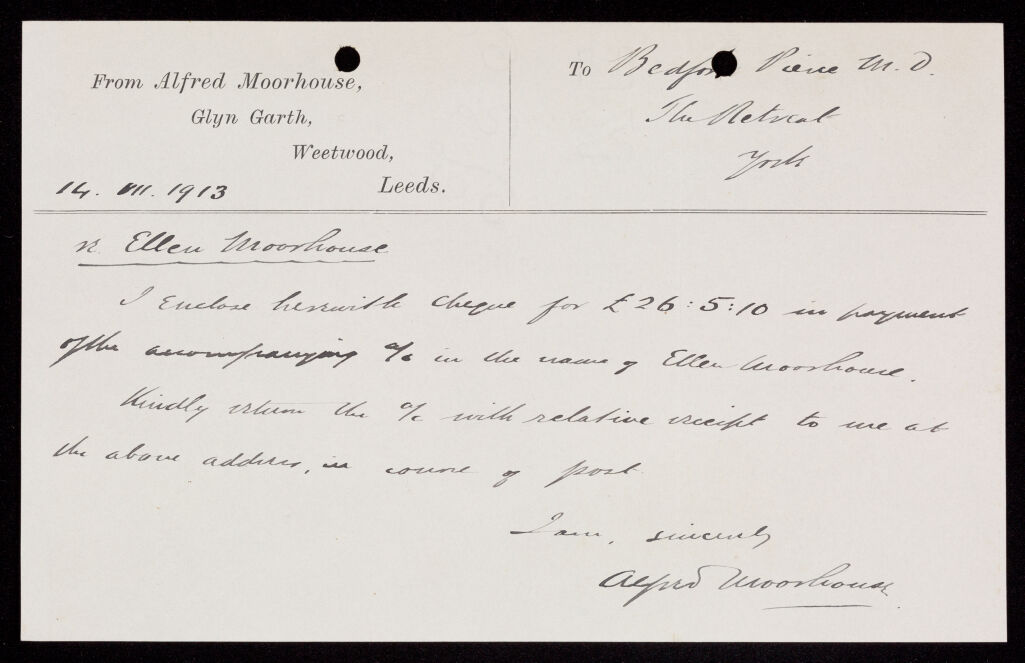 From Alfred Moorhouse,
Glyn Garth,
Weetwood,
Leeds.
14. VII. 1913
To Bedford Pierce M.D.
The Retreat
York
re Ellen Moorhouse
I enclose herewith cheque for £26:5:10 in payment
of the accompanying a/c in the name of Ellen Moorhouse.
Kindly return the a/c with relative receipt to me at
the above address, in course of post.
I am, sincerely
Alfred Moorhouse.